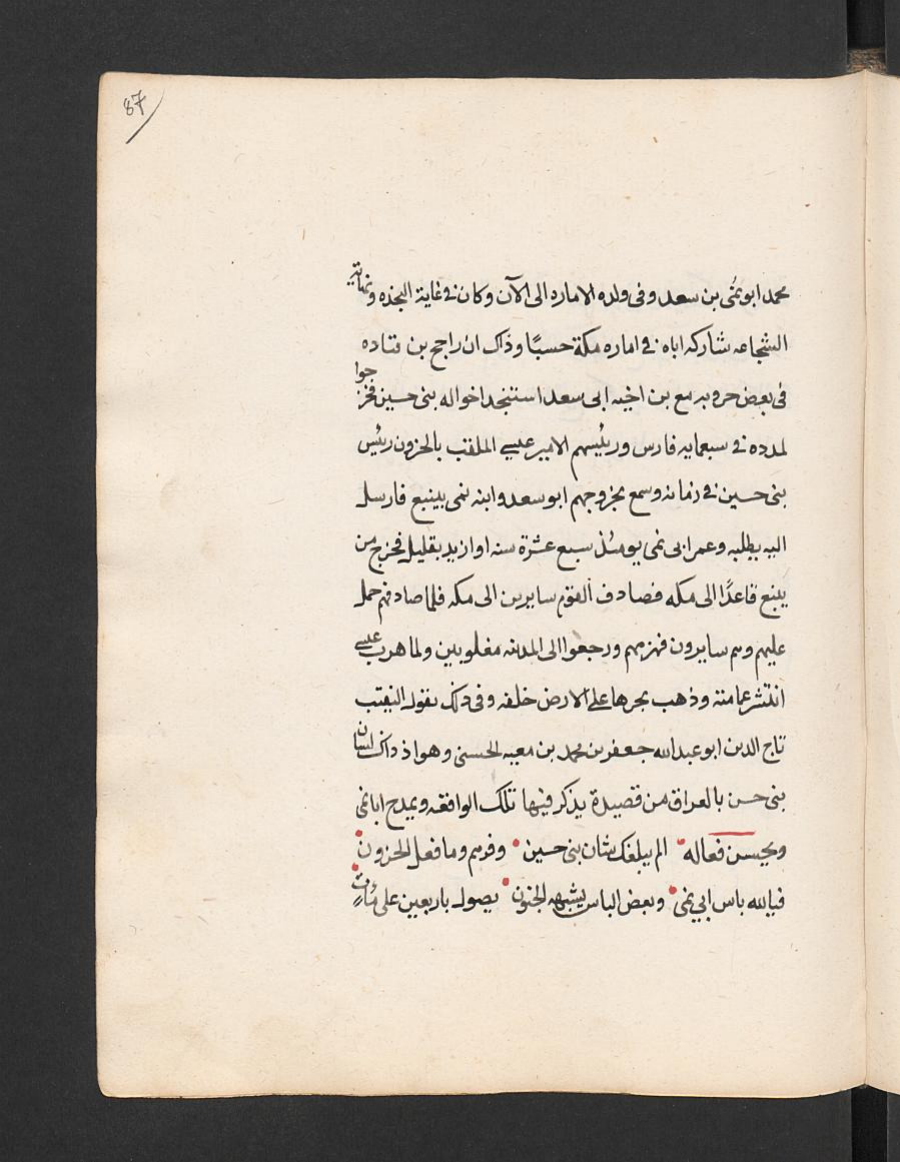 87
محمد ابو نمى بن سعد وفى ولده الاماره الى الآن وكان فى غاية النجده ونهاية
الشجاعه شاركه اباه فى اماره مكة حسبًا وذاك ان راجح بن قتاده
فى بعض حروبه مع بن اخيه ابى سعد استنجد اخواله بنى حسين فخرجوا
لمدده فى سبعمايه فارس ورئيسهم الامير عيسى الملقب بالحزون رئيس
بنى حسين فى زمانه وسمع بخروجهم ابو سعد وابنه نمى بينبع فارسل
اليه يطلبه وعمر ابى نمى يومئذ سبع عشرة سنه او ازيد بقليل فخرج من
ينبع قاعدًا الى مكه فصادف القوم سايرين الى مكه فلما صادفهم حمل
عليهم وهم سايرون فهزمهم ورجعوا الى المدينه مغلوبين ولما هرب عيسى
انتشر عمامته وذهب يجرها على الارض خلفه وفى ذلك يقول النقيب
تاج الدين ابو عبد الله جعفر بن محمد بن معيه الحسنى وهو اذ ذاك لسان
بنى حسن بالعراق من قصيدة يذكر فيها تلك الواقعه ويمدح ابا نمى
ويحسن فعاله الم يبلغك شان بنى حسين وفرهم وما فعل الحزون
فيالله باس ابي نمى وبعض الباس يشبهه الجنون يصول باربعين على مئات